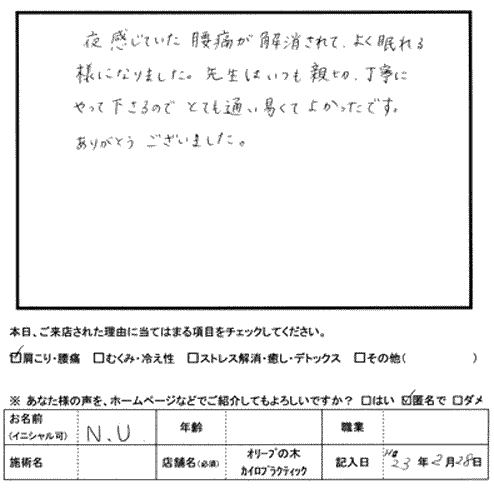 夜感じていた腰痛が解消されて、よく眠れる
様になりました。先生はいつも親切、丁寧に
やって下さるので とても通い易くてよかったです。
ありがとう ございました。
本日、ご来店された理由に当てはまる項目をチェックしてください。
☑肩こり・腰痛 □むくみ・冷え性 □ストレス解消・癒し・デトックス □その他( )
※ あなた様の声を、ホームページなどでご紹介してもよろしいですか？ □はい ☑匿名で □ダメ
お名前 (イニシャル可) N.U 年齢 職業
施術名 店舗名(必須) オリーブの木 カイロプラクティック 記入日 H23年2月28日